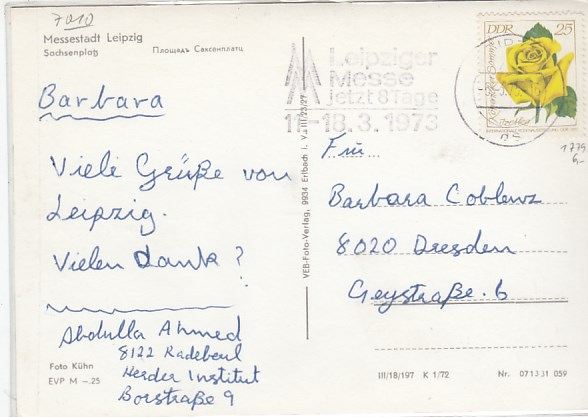 7010
Messestadt Leipzig
Sachsenplatz
Площадь Саксенплатц
Barbara
Viele Grüße von
Leipzig.
Vielen Dank?
Abdulla Ahmed
8122 Radebeul
Herder Institut
Borstraße 9
Foto Kühn
EVP M –.25
VEB-Foto-Verlag, 9934 Erlbach i. V. III/23/27
Leipziger
Messe
jetzt 8 Tage
11-18.3.1973
DDR 25
Frau
Barbara Coblenz
8020 Dresden
Geystraße 6
III/18/197 K 1/72
Nr. 07 13 31 059